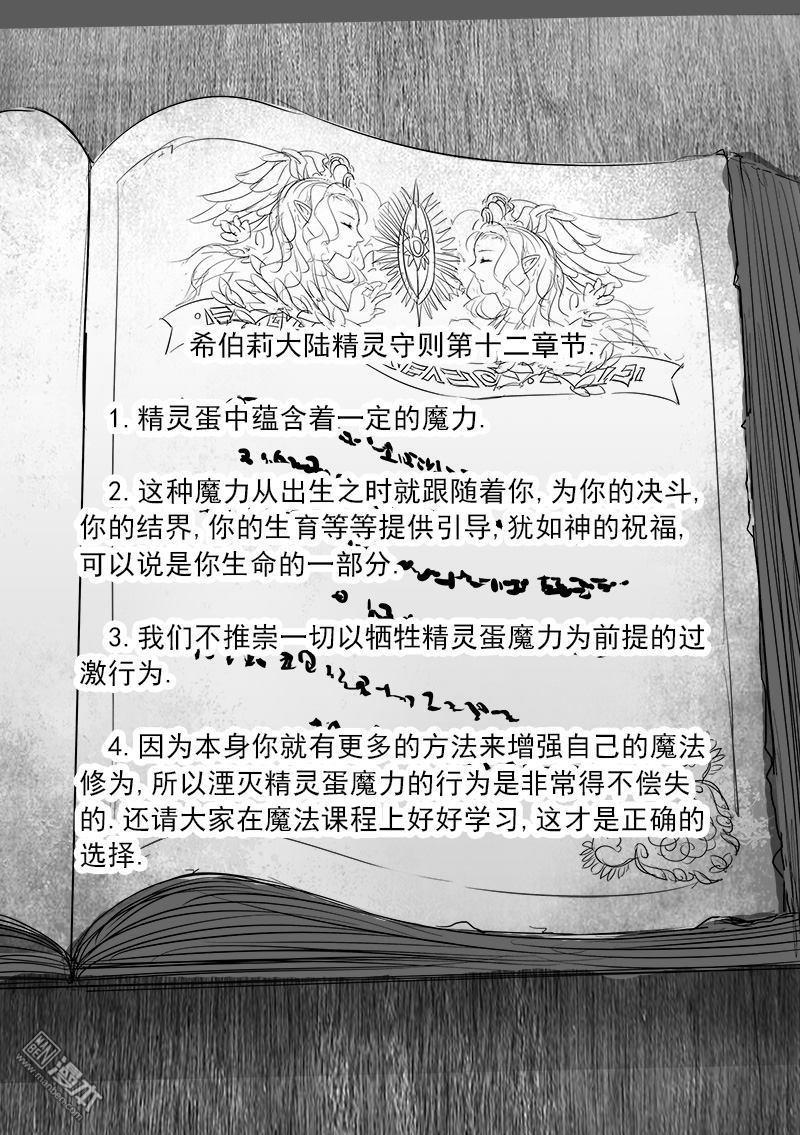 希伯莉大陆精灵守则第十二章节.
1.精灵蛋中蕴含着一定的魔力.
2.这种魔力从出生之时就跟随着你,为你的决斗,
你的结界,你的生育等等提供引导,犹如神的祝福,
可以说是你生命的一部分.
3.我们不推崇一切以牺牲精灵蛋魔力为前提的过
激行为.
4.因为本身你就有更多的方法来增强自己的魔法
修为,所以湮灭精灵蛋魔力的行为是非常得不偿失
的.还请大家在魔法课程上好好学习,这才是正确的
选择.
MAN
BEN
漫本
www.manben.com